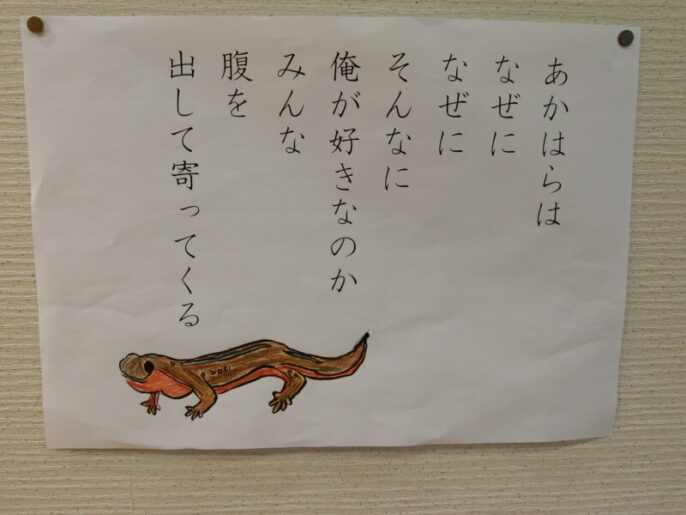 あかはらは
なぜに
なぜに
そんなに
俺が好きなのか
みんな
腹を
出して寄ってくる